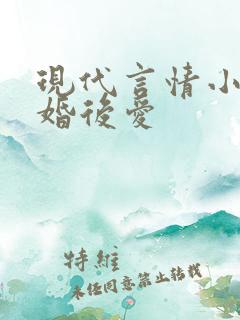 現代言情小
婚後愛
特維
未任同意禁止轉載